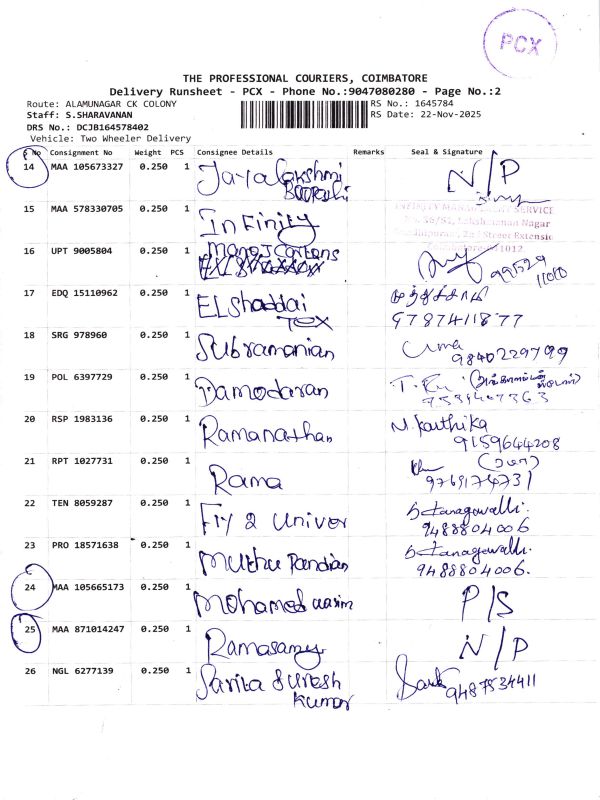 PCX
THE PROFESSIONAL COURIERS, COIMBATORE
Delivery Runsheet - PCX - Phone No.:9047080280 - Page No.:2
Route: ALAMUNAGAR CK COLONY RS No.: 1645784
Staff: S.SHARAVANAN RS Date: 22-Nov-2025
DRS No.: DCJB164578402
Vehicle: Two Wheeler Delivery
S No Consignment No Weight PCS Consignee Details Remarks Seal & Signature
14 MAA 105673327 0.250 1 Jayalakshmi N/P
15 MAA 578330705 0.250 1 Infinity INFINITY MANAGEMENT SERVICE
Lakshmanan Nagar
Street Extensio
16 UPT 9005804 0.250 1 Manoj 99529
17 EDQ 15110962 0.250 1 ELShaddai
TEX 9787411877
18 SRG 978960 0.250 1 Subramanian Uma
9840229799
19 POL 6397729 0.250 1 Damodaran
20 RSP 1983136 0.250 1 Ramanathan N. Karthika
9159644208
21 RPT 1027731 0.250 1 Rama
9769174731
22 TEN 8059287 0.250 1 Fly 2 Univer
9488804006
23 PRO 18571638 0.250 1 Muthu Pandian
9488804006.
24 MAA 105665173 0.250 1 Mohamed P/S
25 MAA 871014247 0.250 1 Ramasamy N/P
26 NGL 6277139 0.250 1 Sarika Suresh
Kumar 9487534411